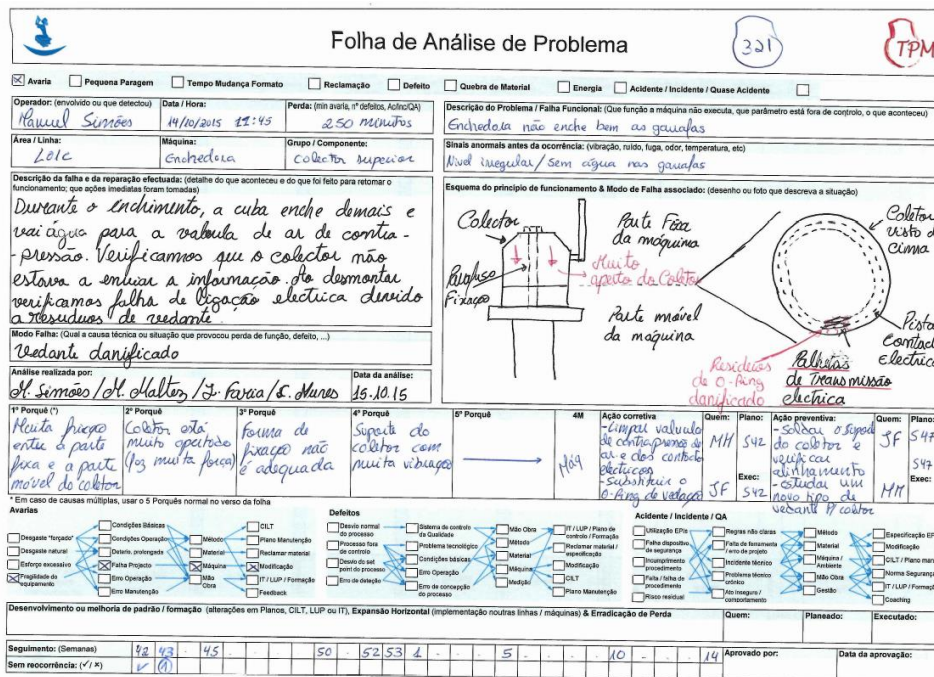 Folha de Análise de Problema
321
TPM
Avaria Pequena Paragem Tempo Mudança Formato Reclamação Defeito Quebra de Material Energia Acidente / Incidente / Quase Acidente
Operador: (envolvido ou que detectou)
Manuel Simões
Data / Hora:
14/10/2015 11:45
Perda: (min avaria, nº defeitos, Ac/Inc/QA)
250 minutos
Descrição do Problema / Falha Funcional: (Que função a máquina não executa, que parâmetro está fora de controlo, o que aconteceu)
Enchedora não enche bem as garrafas
Área / Linha:
Máquina:
Enchedora
Grupo / Componente:
Colector superior
Sinais anormais antes da ocorrência: (vibração, ruído, fuga, odor, temperatura, etc)
Nivel irregular / sem água nas garrafas
Descrição da falha e da reparação efectuada: (detalhe do que aconteceu e do que foi feito para retomar o
funcionamento; que ações imediatas foram tomadas)
Durante o enchimento, a cuba enche demais e
vai água para a valvula de ar de contra-
-pressão. Verificamos que o colector não
estava a enviar a informação. Ao desmontar
verificamos falha de ligação electrica devido
a residuos de vedante.
Esquema do principio de funcionamento & Modo de Falha associado: (desenho ou foto que descreva a situação)
Colector
Parafuso
Fixação
Parte Fixa
da máquina
Muito
aperto do Coletor
Parte movel
da máquina
Coletor
visto d
cima
Pista
contact
electrica
Residuos
de O-Ring
danificado
Palhetas
de Transmissão
electrica
Modo Falha: (Qual a causa técnica ou situação que provocou perda de função, defeito, ...)
Vedante danificado
Análise realizada por:
M. Simões / M. Maltez / J. Faria / S. Nunes
Data da análise:
15.10.15
1º Porquê (*)
Muita fricção
entre a parte
fixa e a parte
móvel do coletor
2º Porquê
Coletor está
muito apertado
(faz muita força)
3º Porquê
Forma de
fixação não
é adequada
4º Porquê
Suporte do
coletor com
muita vibração
5º Porquê
4M
Máq
Ação corretiva
-Limpar valvula
de contrapressão de
ar e dos contactos
electricos
-Substituir o
O-Ring de vedação
Quem:
MM
JF
Plano:
S42
Exec:
S42
Ação preventiva:
-Soldar o suport
do coletor e
verificar
alinhamento
-Estudar um
novo tipo de
vedante p/ coletor
Quem:
JF
MM
Plano:
S47
S47
Exec:
* Em caso de causas múltiplas, usar o 5 Porquês normal no verso da folha
Avarias
Desgaste "forçado"
Desgaste natural
Esforço excessivo
Fragilidade do
equipamento
Condições Básicas
Condições Operação
Deterio. prolongada
Falha Projecto
Erro Operação
Erro Manutenção
Método
Material
Máquina
Mão
Obra
CILT
Plano Manutenção
Reclamar material
Modificação
IT / LUP / Formação
Feedback
Defeitos
Desvio normal
do processo
Processo fora
de controlo
Desvio do set
point do processo
Erro de deteção
Sistema de controlo
da Qualidade
Problema tecnológico
Condições básicas
Erro Operação
Erro de concepção
do processo
Mão Obra
Método
Material
Máquina
Medição
IT / LUP / Plano de
controlo / Formação
Reclamar material /
especificação
Modificação
CILT
Plano Manutenção
Acidente / Incidente / QA
Utilização EPIs
Falha dispositivo
de segurança
Incumprimento
procedimento
Falta / falha de
procedimento
Risco residual
Regras não claras
Falta de ferramenta
/ erro de projeto
Incidente técnico
Problema técnico
crónico
Ato inseguro /
comportamento
Método
Material
Máquina /
Ambiente
Mão Obra
Gestão
Especificação EP
Modificação
CILT / Plano man
Norma Segurança
IT / LUP / Formaçã
Coaching
Desenvolvimento ou melhoria de padrão / formação (alterações em Planos, CILT, LUP ou IT), Expansão Horizontal (implementação noutras linhas / máquinas) & Erradicação de Perda
Quem:
Planeado:
Executado:
Seguimento: (Semanas) 42 43 . 45 . . . . 50 . 52 53 1 . . . 5 . . . . 10 . . . 14
Aprovado por:
Data da aprovação:
Sem reocorrência: (✓/×) ✓ 1